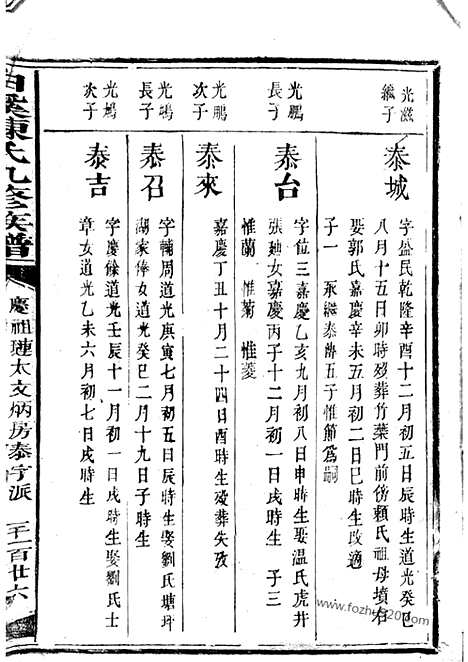 光滋
繼子
泰城
字盛民乾隆辛酉十二月初五日辰時生道光癸巳
八月十五日卯時歿葬竹葉門前傍賴氏祖母墳右
娶郭氏嘉慶辛未五月初二日巳時生改適
子一 承繼泰濤五子惟節爲嗣
光鵬
長子
泰台
字位三嘉慶乙亥九月初八日申時生娶温氏虎井
張廸女嘉慶丙子十二月初一日戌時生 子三
惟蘭 惟菊 惟菱
光鵬
次子
泰來
嘉慶丁丑十月二十四日酉時生歿葬失攷
光鴣
長子
泰召
字輔周道光庚寅七月初五日辰時生娶劉氏塘坪
湖家俸女道光癸巳二月十九日子時生
光鴣
次子
泰吉
字慶餘道光壬辰十一月初一日戌時生娶劉氏士
章女道光乙未六月初七日戌時生
白溪陳氏九修族譜
慶祖璉太支炳房泰字派
百廿六
www.fozhu920.com